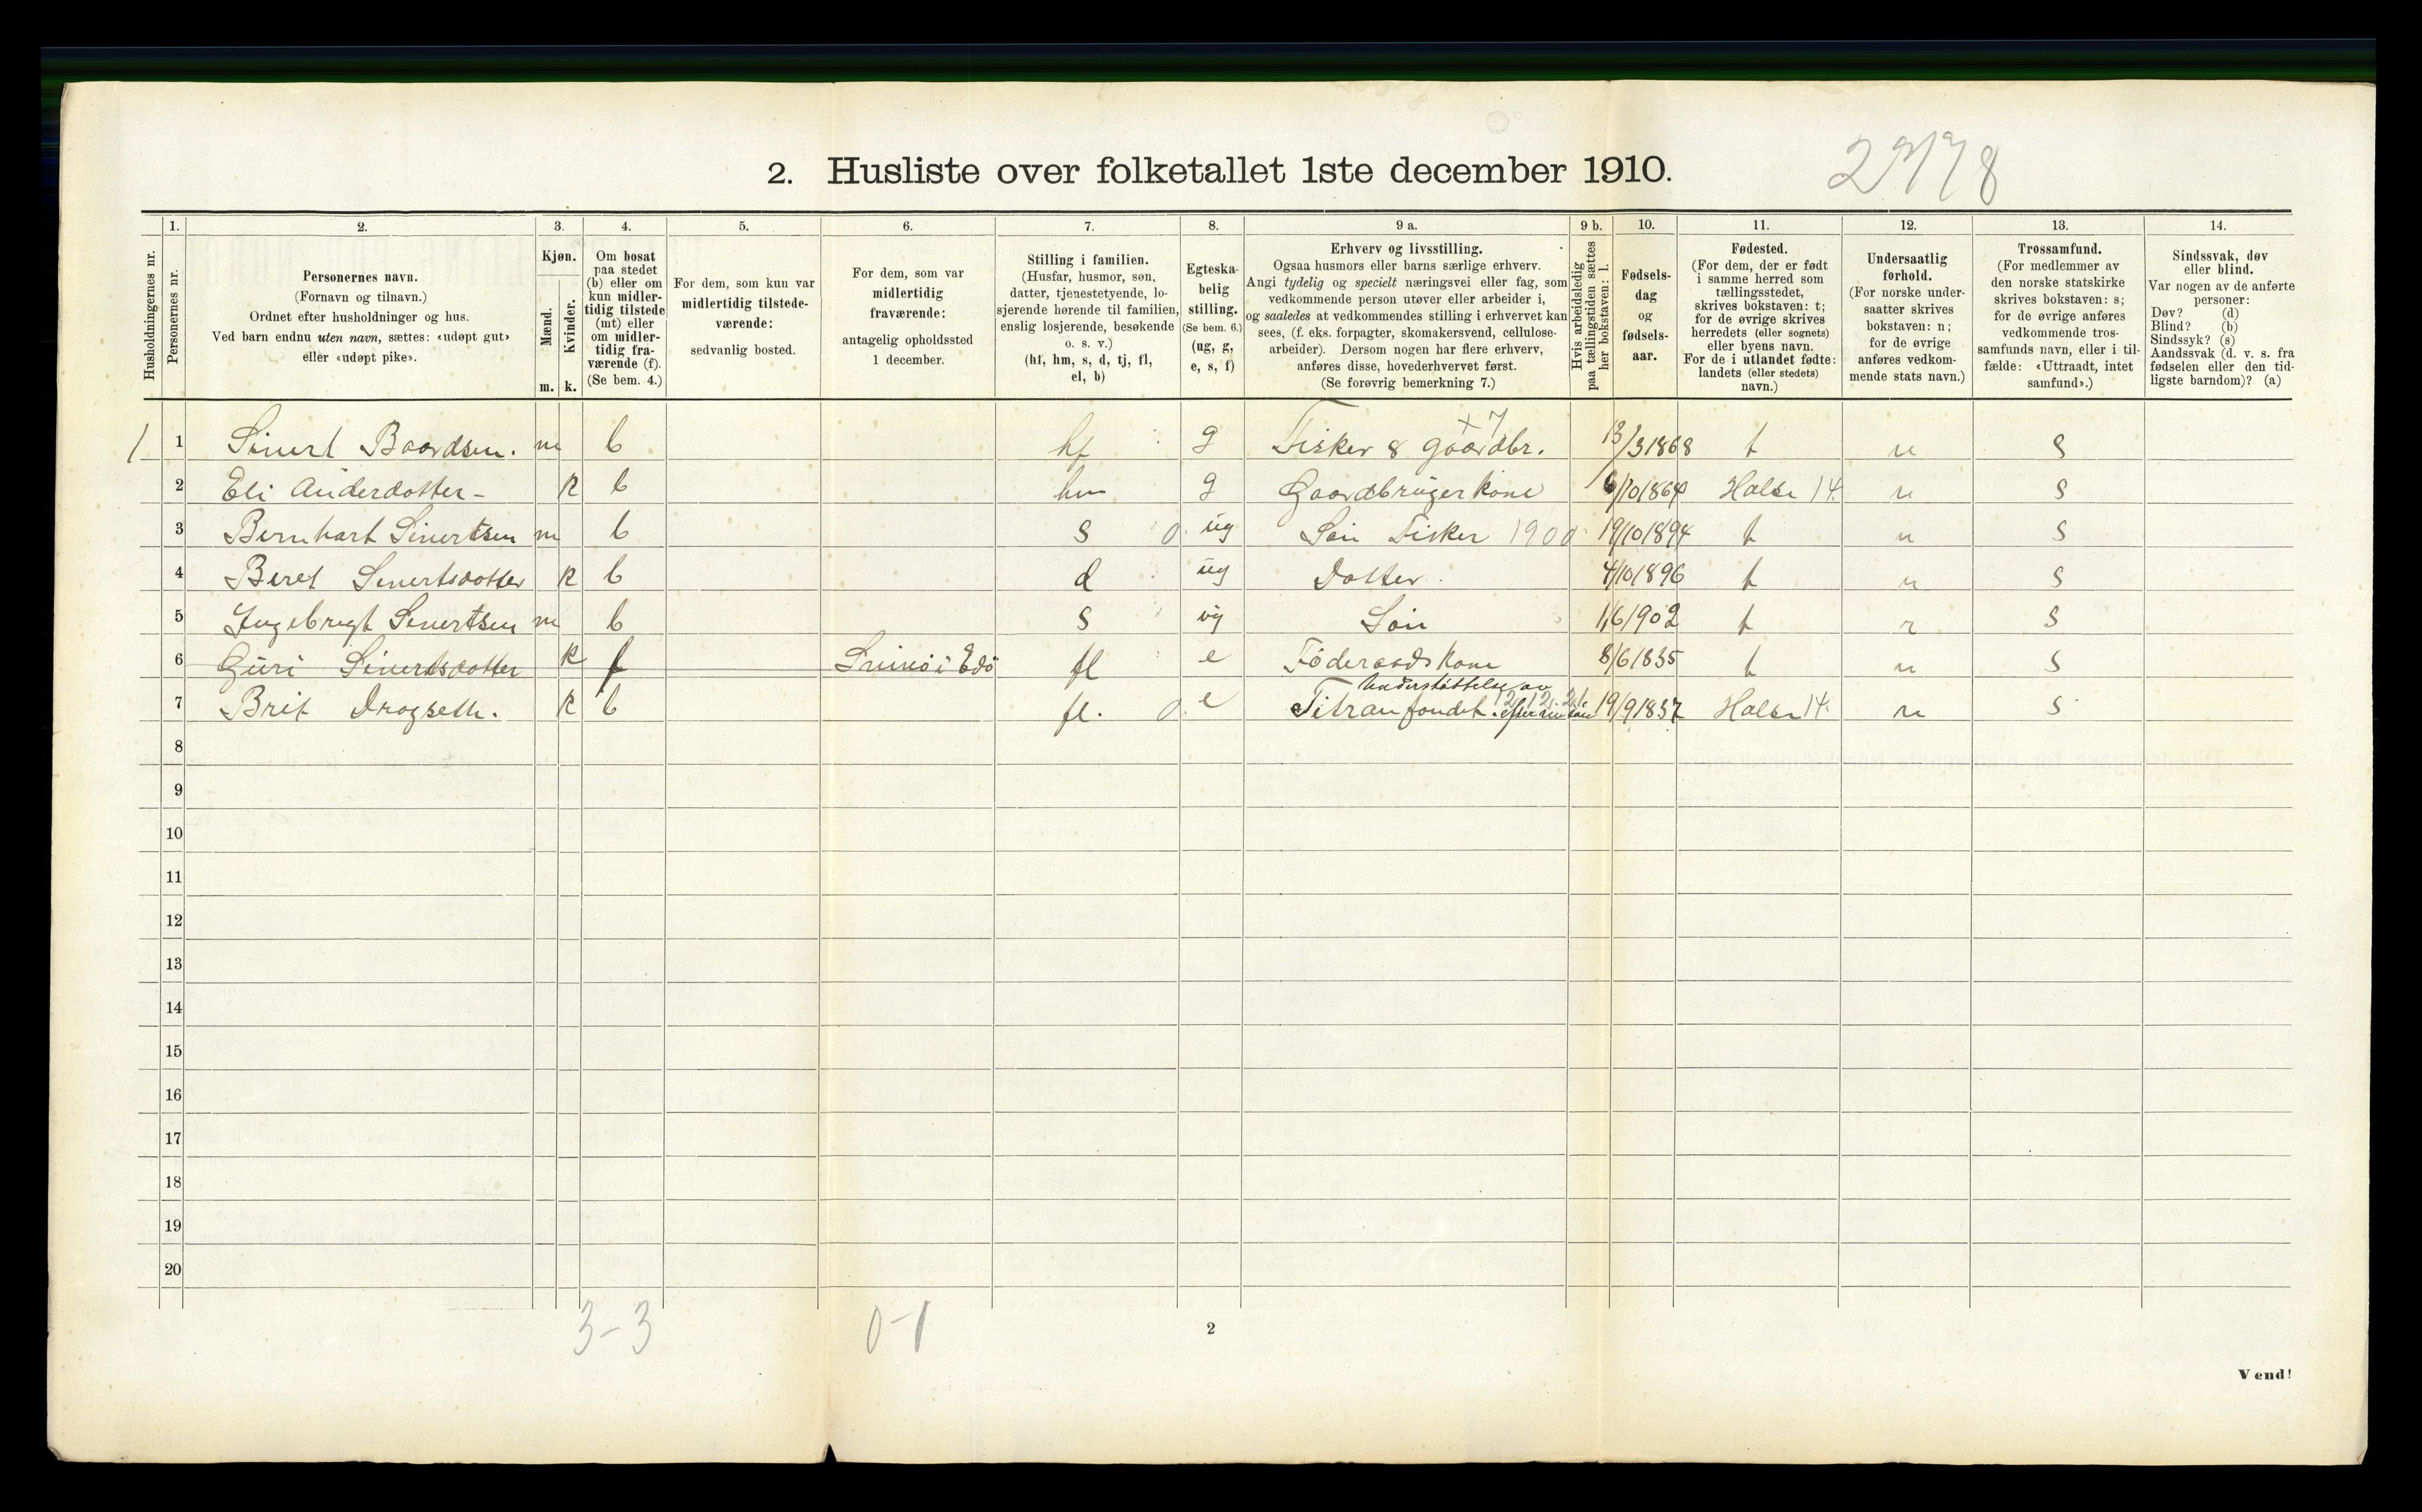 2. Husliste over folketallet 1ste december 1910.
Husholdningernes nr.
1. Personernes nr.
2. Personernes navn.
(Fornavn og tilnavn.)
Ordnet efter husholdninger og hus.
Ved barn endnu uten navn, sættes: «udøpt gut»
eller «udøpt pike».
3. Kjøn.
Mænd. m.
Kvinder. k.
4. Om bosat
paa stedet
(b) eller om
kun midler-
tidig tilstede
(mt) eller
om midler-
tidig fra-
værende (f).
(Se bem. 4.)
5. For dem, som kun var
midlertidig tilstede-
værende:
sedvanlig bosted.
6. For dem, som var
midlertidig
fraværende:
antagelig opholdssted
1 december.
7. Stilling i familien.
(Husfar, husmor, søn,
datter, tjenestetyende, lo-
sjerende hørende til familien,
enslig losjerende, besøkende
o. s. v.)
(hf, hm, s, d, tj, fl,
el, b)
8. Egteska-
belig
stilling.
(Se bem. 6.)
(ug, g,
e, s, f)
9 a. Erhverv og livsstilling.
Ogsaa husmors eller barns særlige erhverv.
Angi tydelig og specielt næringsvei eller fag, som
vedkommende person utøver eller arbeider i,
og saaledes at vedkommendes stilling i erhvervet kan
sees, (f. eks. forpagter, skomakersvend, cellulose-
arbeider). Dersom nogen har flere erhverv,
anføres disse, hovederhvervet først.
(Se forøvrig bemerkning 7.)
9 b. Hvis arbeidsledig
paa tællingstiden sættes
her bokstaven: l.
10. Fødsels-
dag
og
fødsels-
aar.
11. Fødested.
(For dem, der er født
i samme herred som
tællingsstedet,
skrives bokstaven: t;
for de øvrige skrives
herredets (eller sognets)
eller byens navn.
For de i utlandet fødte:
landets (eller stedets)
navn.)
12. Undersaatlig
forhold.
(For norske under-
saatter skrives
bokstaven: n;
for de øvrige
anføres vedkom-
mende stats navn.)
13. Trossamfund.
(For medlemmer av
den norske statskirke
skrives bokstaven: s;
for de øvrige anføres
vedkommende tros-
samfunds navn, eller i til-
fælde: «Uttraadt, intet
samfund».)
14. Sindssvak, døv
eller blind.
Var nogen av de anførte
personer:
Døv? (d)
Blind? (b)
Sindssyk? (s)
Aandssvak (d. v. s. fra
fødselen eller den tid-
ligste barndom)? (a)
+ 7
1 1 Sivert Baardsen. m b hf g Fisker & gaardbr. 13/3 1868 t n s
2 Eli Andersdotter k b hm g Gaardbrugerkone 6/10 1864 Halse 14 n s
3 Bernhart Sivertsen m b s 0 ug Søn Fisker 1900 19/10 1894 t n s
4 Beret Sivertsdotter k b d ug Dotter. 4/10 1896 t n s
5 Ingebrigt Sivertsen m b s ug Søn 1/6 1902 t n s
6 Guri Sivertsdotter k f Sminø i Edø fl e Føderaadskone 8/6 1835 t n s
Understøttelse av
7 Brit Drageseth. k b fl. 0. e Titranfondet. 19/9 1837 Halse 14. n s
8
9
10
11
12
13
14
15
16
17
18
19
20
3-3 0-1
2
Vend!